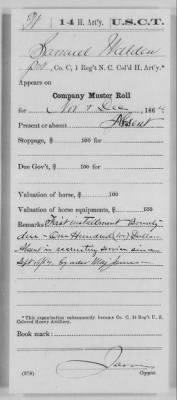 14 H. Art'y. U.S.C.T.
Samuel
Co. C, 1 Reg't N. C. Col'd H. Art'y.*
Appears on
Company Muster Roll
for Nov & Dec, 186
Present or absent Absent
Stoppage, $ 100 for
Due Gov't, $ 100 for
Valuation of horse, $ 100
Valuation of horse equipments, $ 100
Remarks: First installment Bounty
due - One Hundred Dollars
Absent on recruiting service since
Sept by order Maj
*This organization subsequently became Co. C, 14 Reg't U. S.
Colored Heavy Artillery.
Book mark:
(378) Copyist.